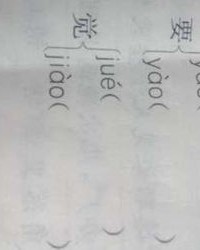 要 yāo
yào( )
觉 jué( )
jiào( )